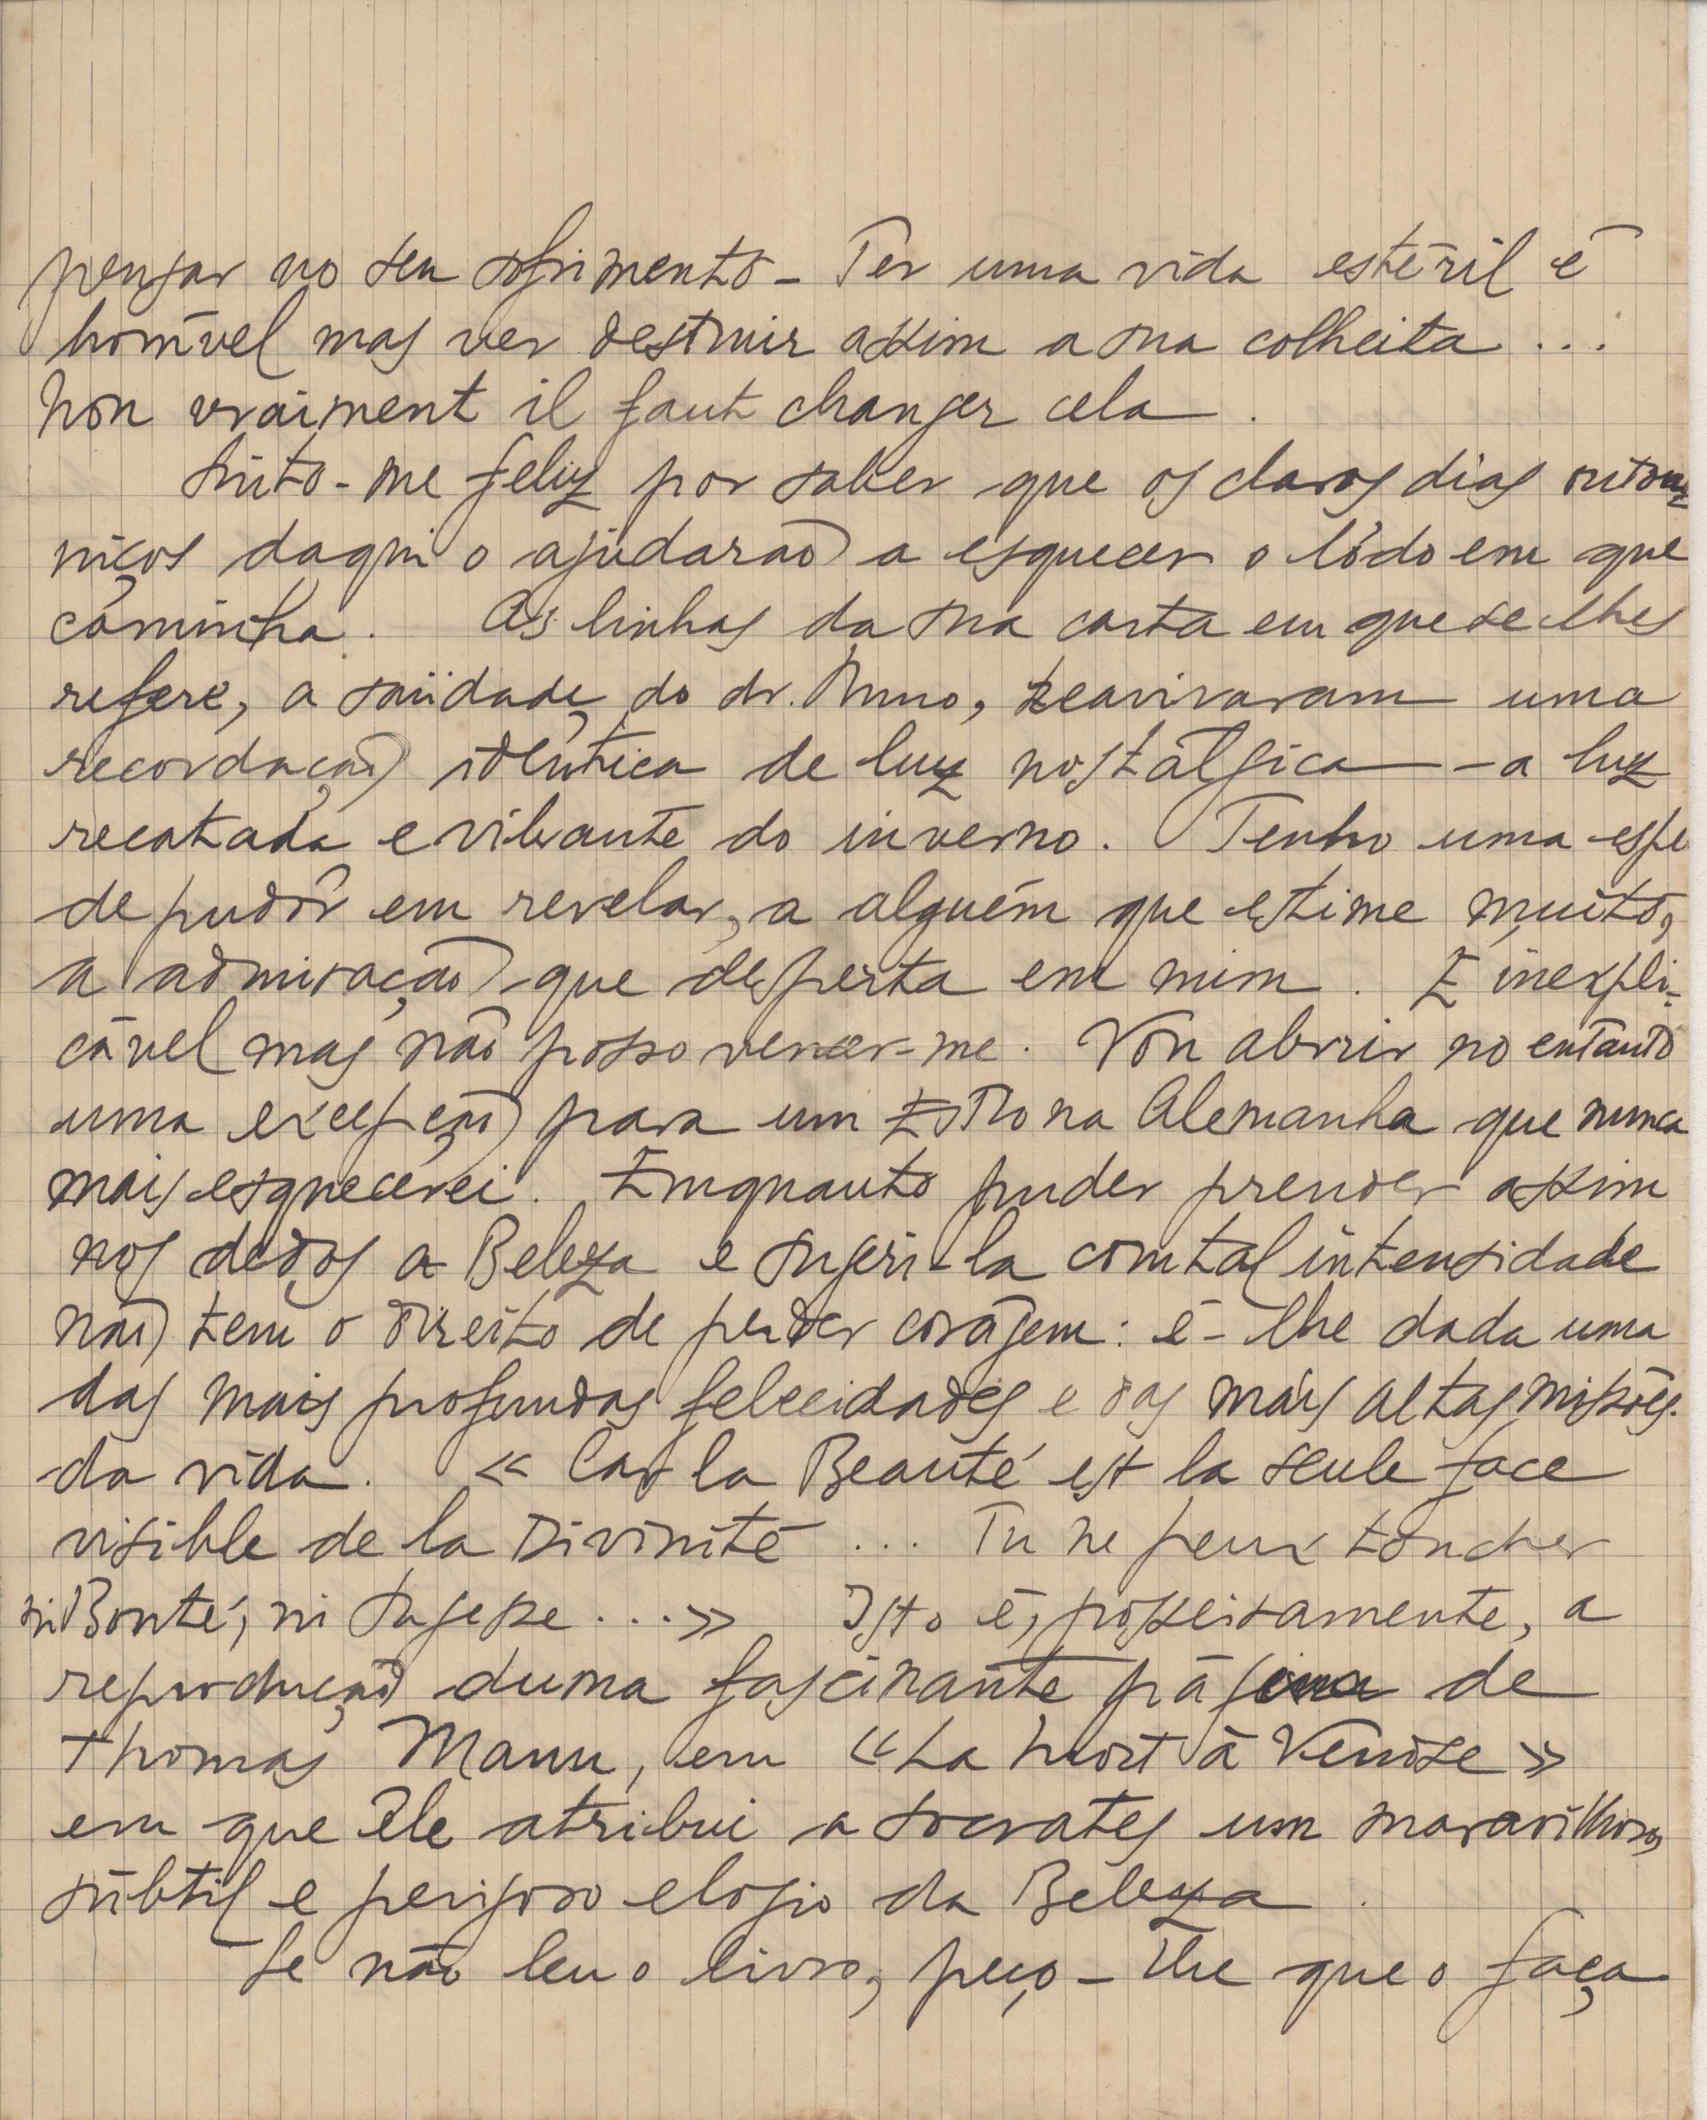 pensar no seu sofrimento - Ter uma vida estéril é
horrível mas ver destruir assim a sua colheita ...
Non vraiment il faut changer cela.
Sinto-me feliz por saber que os claros dias outom-
niços daqui o ajudarão a esquecer o lôdo em que
caminha. As linhas da sua carta em que se lhes
refere, a saüdade do dr. Nuno, reavivaram uma
recordação idêntica de luz nostálgica - a luz
recatada e vibrante do inverno. Tenho uma espe
de pudôr em revelar, a alguém que estime muito,
a admiração que desperta em mim. É inexpli-
cável mas não posso vencer-me. Vou abrir no entanto
uma excepção para um na Alemanha que nunca
mais esquecerei. Emquanto puder prender assim
nos dedos a Beleza e sugeri-la com tal intensidade
não tem o direito de perder corágem: é-lhe dada uma
das mais profundas felecidades e das mais altas missões
da vida. « Car la Beauté est la seule face
visible de la Divinité ... Tu ne peux toucher
ni Bonté, ni Sagesse ...» Isto é, grosseiramente, a
reprodução duma fascinante página de
Thomas Mann, em « La Mort à Venise »
em que êle atribui a Socrates um maravilhoso,
súbtil e perigoso elogio da Beleza.
Se não leu o livro, peço-lhe que o faça